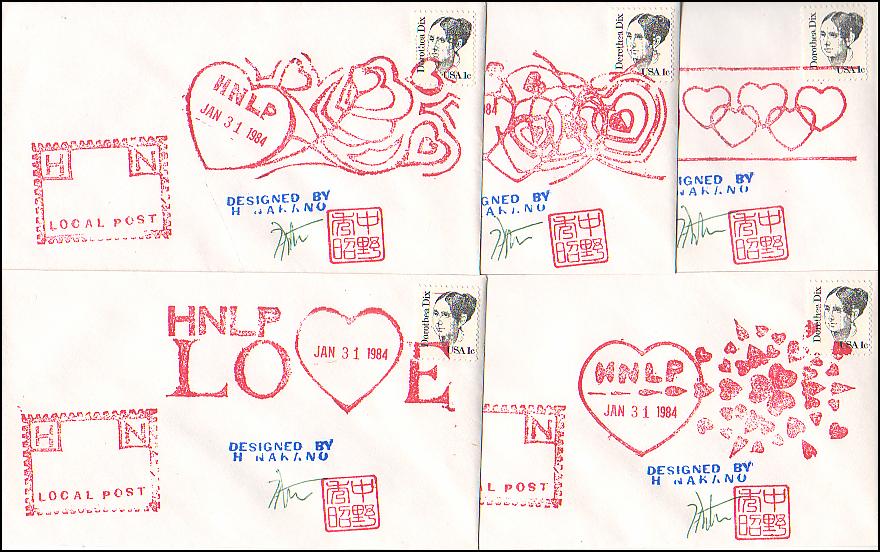 Dorothea Dix
USA 1c
HNLP
JAN 31 1984
H N
LOCAL POST
DESIGNED BY
H NAKANO
中野
秀昭
Dorothea Dix
USA 1c
84
GNED BY
AKANO
中野
秀昭
Dorothea Dix
USA 1c
IGNED BY
AKANO
中野
秀昭
Dorothea Dix
USA 1c
HNLP
LO E
JAN 31 1984
H N
LOCAL POST
DESIGNED BY
H NAKANO
中野
秀昭
Dorothea Dix
USA 1c
HNLP
JAN 31 1984
N
AL POST
DESIGNED BY
H NAKANO
中野
秀昭